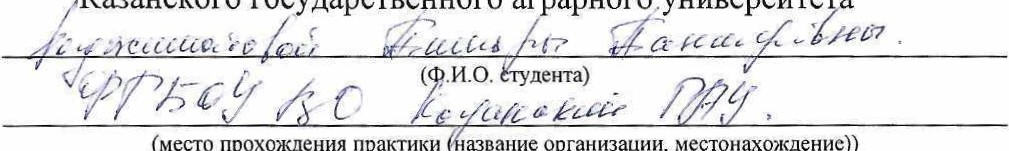 Казанского государственного аграрного университета
(Ф.И.О. студента)
ФГБОУ ВО Казанский ГАУ.
(место прохождения практики (название организации, местонахождение))